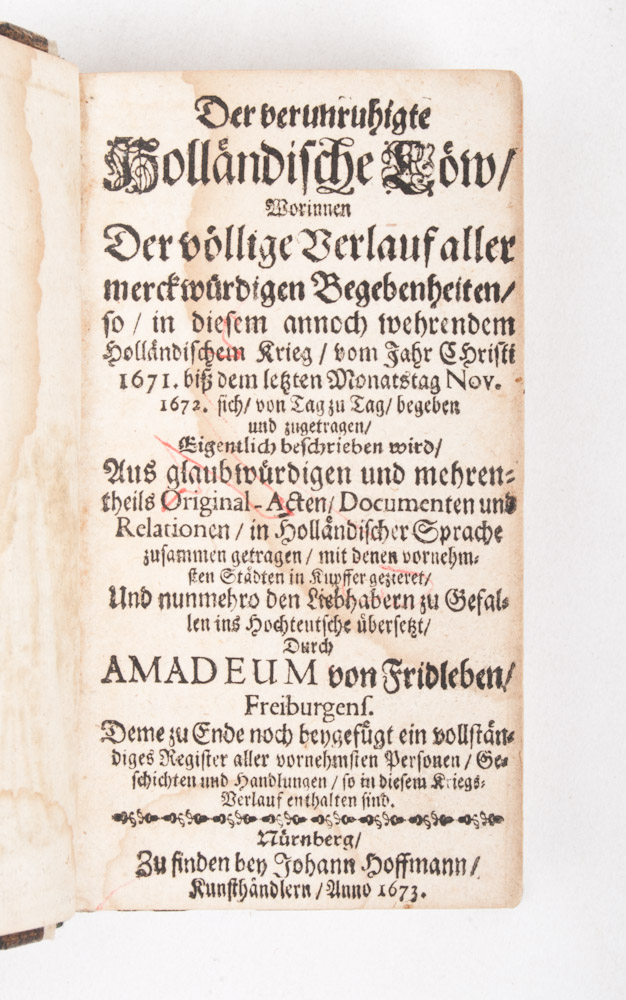 Der verunruhigte
Holländische Löw/
Worinnen
Der völlige Verlauf aller
merckwürdigen Begebenheiten/
so / in diesem annoch wehrendem
Holländischem Krieg / vom Jahr CHristi
1671. biß dem letzten Monatstag Nov.
1672. sich/ von Tag zu Tag/ begeben
und zugetragen/
Eigentlich beschrieben wird/
Aus glaubwürdigen und mehren-
theils Original-Acten/ Documenten und
Relationen / in Holländischer Sprache
zusammen getragen / mit denen vornehm-
sten Städten in Kupffer gezieret/
Und nunmehro den Liebhabern zu Gefal-
len ins Hochteutsche übersetzt/
Durch
AMADEUM von Fridleben/
Freiburgens.
Deme zu Ende noch beygefügt ein vollstän-
diges Register aller vornehmsten Personen / Ge-
schichten und Handlungen / so in diesem Kriegs-
Verlauf enthalten sind.
Nürnberg/
Zu finden bey Johann Hoffmann/
Kunsthändlern / Anno 1673.